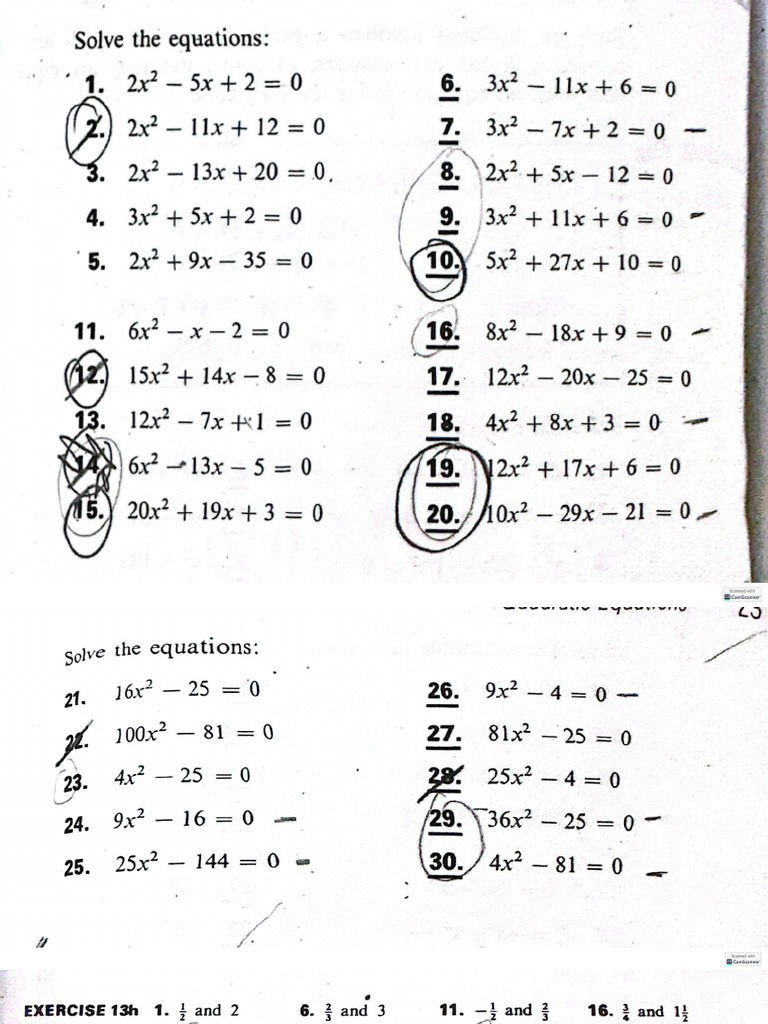 Solve the equations:
1. 2x² − 5x + 2 = 0
2. 2x² − 11x + 12 = 0
3. 2x² − 13x + 20 = 0.
4. 3x² + 5x + 2 = 0
5. 2x² + 9x − 35 = 0
6. 3x² − 11x + 6 = 0
7. 3x² − 7x + 2 = 0
8. 2x² + 5x − 12 = 0
9. 3x² + 11x + 6 = 0
10. 5x² + 27x + 10 = 0
11. 6x² − x − 2 = 0
12. 15x² + 14x − 8 = 0
13. 12x² − 7x + 1 = 0
14. 6x² − 13x − 5 = 0
15. 20x² + 19x + 3 = 0
16. 8x² − 18x + 9 = 0
17. 12x² − 20x − 25 = 0
18. 4x² + 8x + 3 = 0
19. 12x² + 17x + 6 = 0
20. 10x² − 29x − 21 = 0
Scanned with
CamScanner
Quadratic Equations
Solve the equations:
21. 16x² − 25 = 0
22. 100x² − 81 = 0
23. 4x² − 25 = 0
24. 9x² − 16 = 0
25. 25x² − 144 = 0
26. 9x² − 4 = 0
27. 81x² − 25 = 0
28. 25x² − 4 = 0
29. 36x² − 25 = 0
30. 4x² − 81 = 0
Scanned with
CamScanner
EXERCISE 13h 1. ½ and 2 6. ⅔ and 3 11. −½ and ⅔ 16. ¾ and 1½